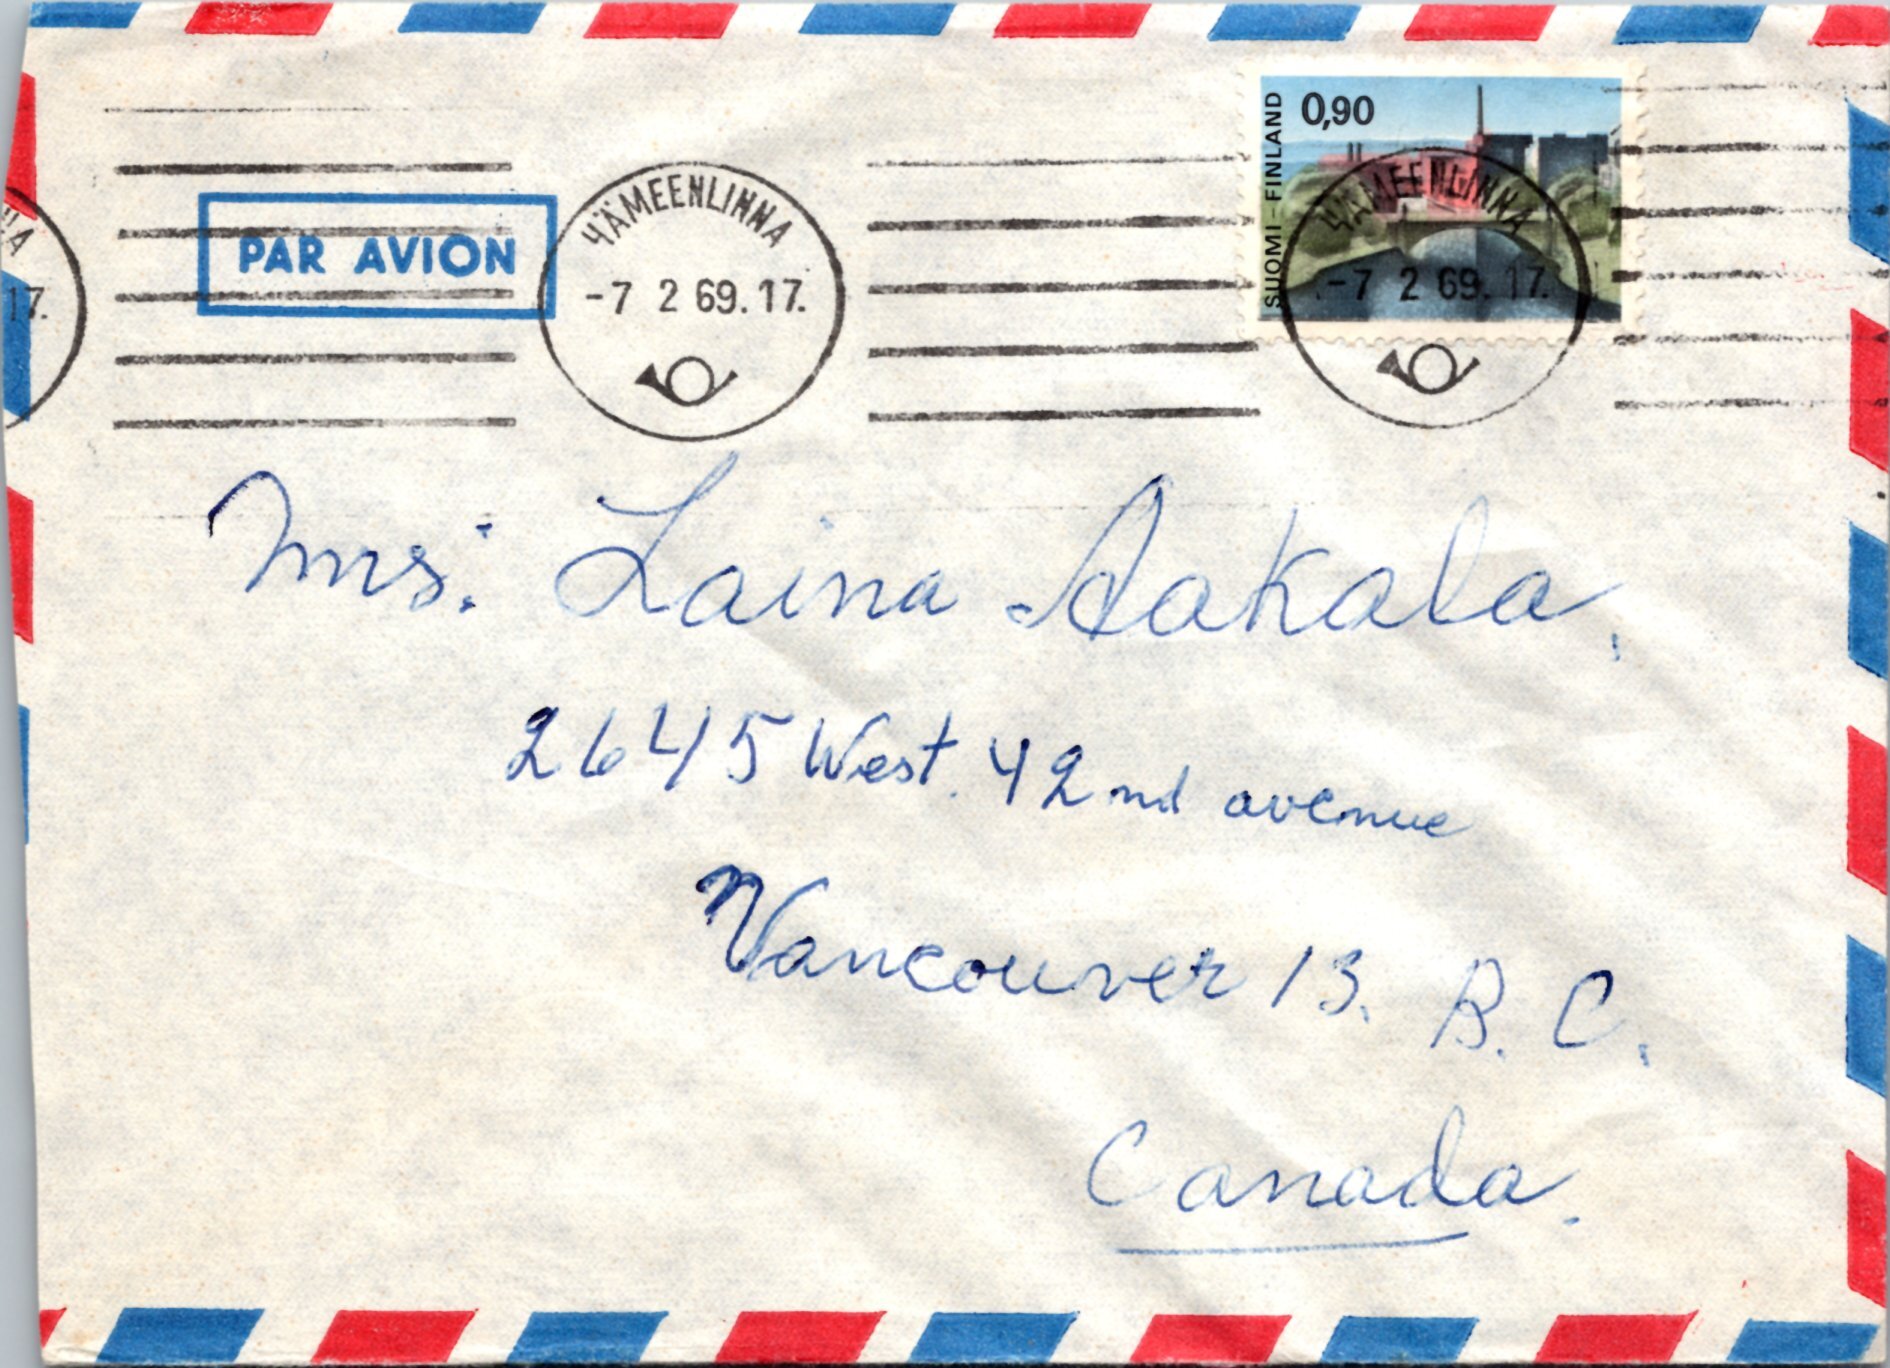 0,90
SUOMI – FINLAND
PAR AVION
HÄMEENLINNA
-7 2 69.17.
HÄMEENLINNA
-7 2 69. 17.
17.
Mrs: Laina Aakala,
2645 West. 42nd avenue
Vancouver 13, B. C,
Canada.